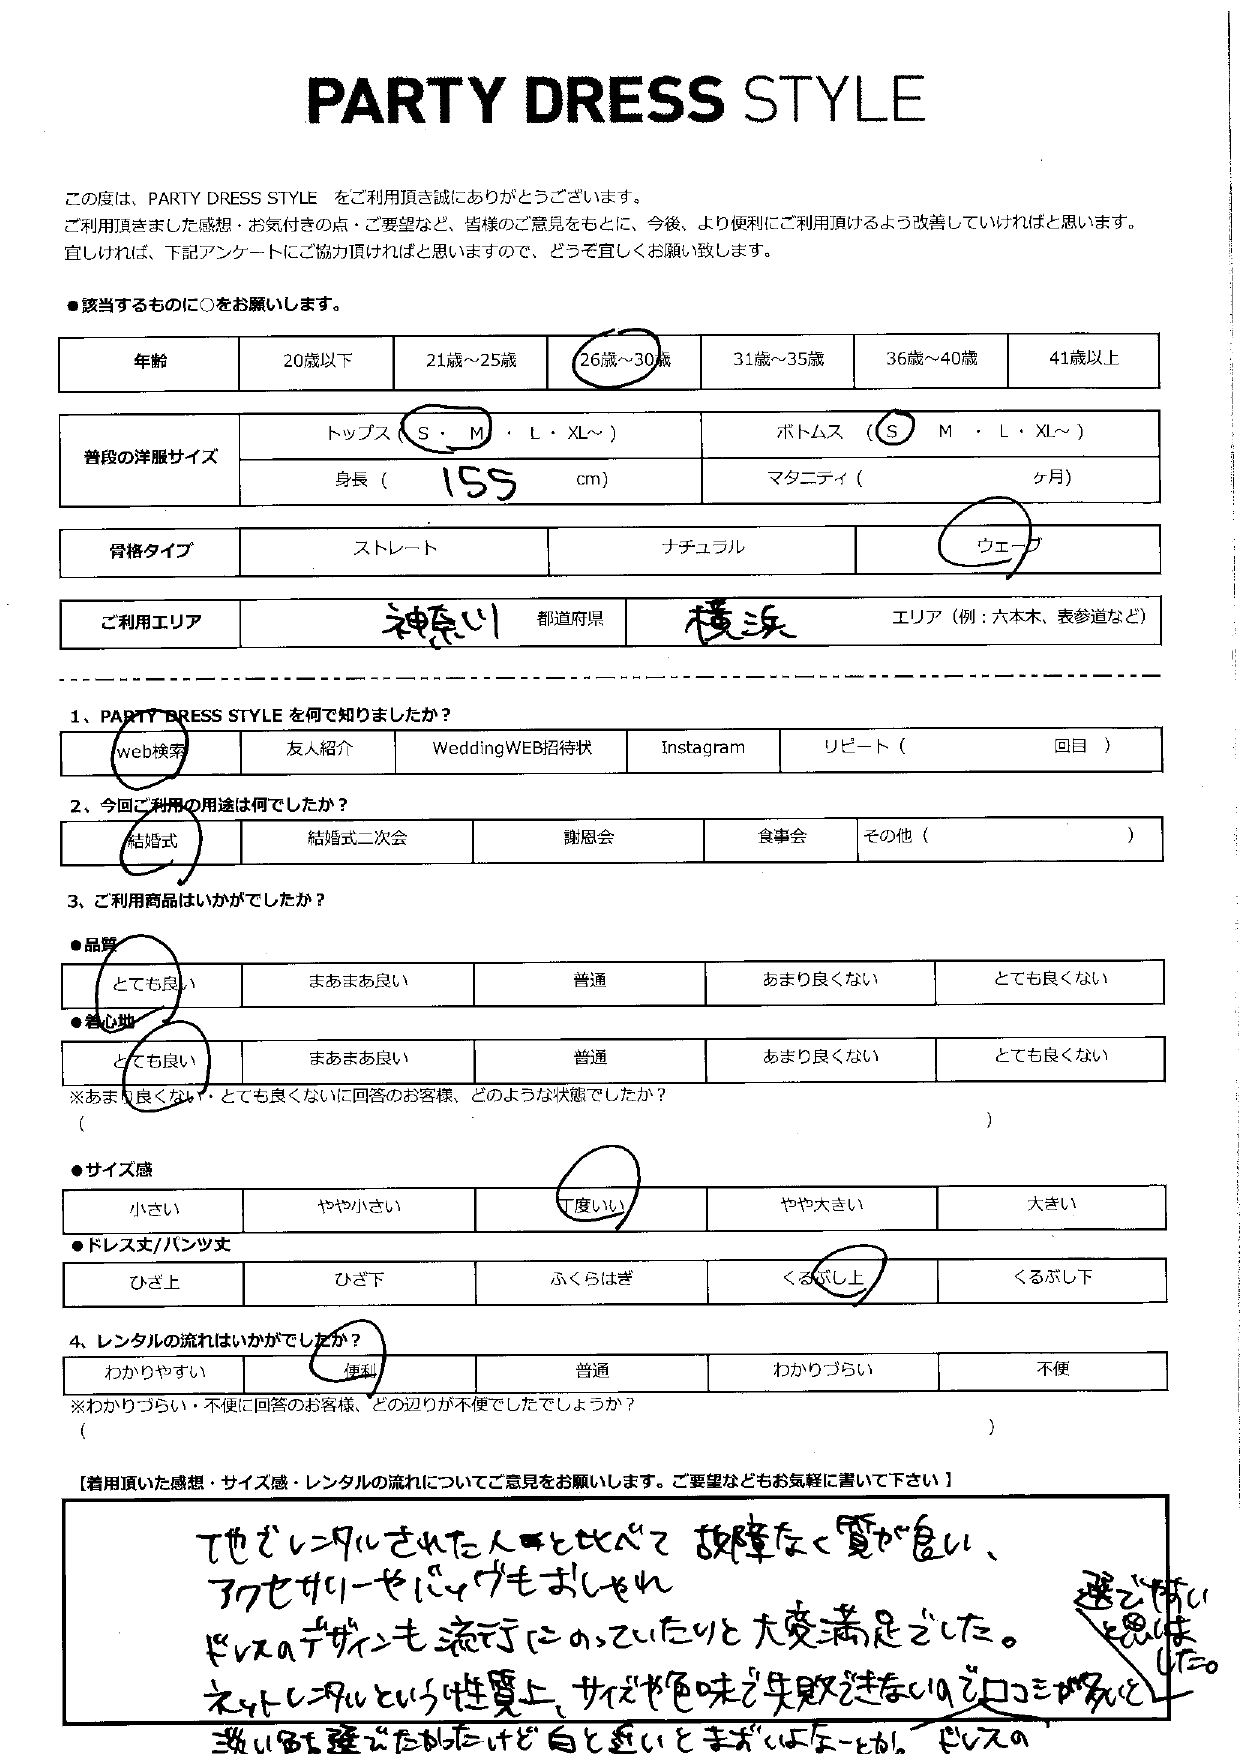 PARTY DRESS STYLE
この度は、PARTY DRESS STYLE をご利用頂き誠にありがとうございます。
ご利用頂きました感想・お気付きの点・ご要望など、皆様のご意見をもとに、今後、より便利にご利用頂けるよう改善していければと思います。
宜しければ、下記アンケートにご協力頂ければと思いますので、どうぞ宜しくお願い致します。
●該当するものに○をお願いします。
年齢 20歳以下 21歳～25歳 26歳～30歳 31歳～35歳 36歳～40歳 41歳以上
普段の洋服サイズ トップス ( S ・ M ・ L ・ XL～ ) ボトムス ( S M ・ L ・ XL～ )
身長 ( 155 cm) マタニティ ( ヶ月)
骨格タイプ ストレート ナチュラル ウェーブ
ご利用エリア 神奈川 都道府県 横浜 エリア（例：六本木、表参道など）
1、PARTY DRESS STYLE を何で知りましたか？
web検索 友人紹介 WeddingWEB招待状 Instagram リピート ( 回目 )
2、今回ご利用の用途は何でしたか？
結婚式 結婚式二次会 謝恩会 食事会 その他 ( )
3、ご利用商品はいかがでしたか？
●品質
とても良い まあまあ良い 普通 あまり良くない とても良くない
●着心地
とても良い まあまあ良い 普通 あまり良くない とても良くない
※あまり良くない・とても良くないに回答のお客様、どのような状態でしたか？
( )
●サイズ感
小さい やや小さい 丁度いい やや大きい 大きい
●ドレス丈/パンツ丈
ひざ上 ひざ下 ふくらはぎ くるぶし上 くるぶし下
4、レンタルの流れはいかがでしたか？
わかりやすい 便利 普通 わかりづらい 不便
※わかりづらい・不便に回答のお客様、どの辺りが不便でしたでしょうか？
( )
【着用頂いた感想・サイズ感・レンタルの流れについてご意見をお願いします。ご要望などもお気軽に書いて下さい 】
他でレンタルされた人と比べて 故障なく質が良い、
アクセサリーやバッグもおしゃれ
ドレスのデザインも流行にのっていたりと大変満足でした。
ネットレンタルという性質上、サイズや色味で失敗できないので口コミが多いと
選びやすい
と思いま
した。
淡い色も選びたかったけど白と近いとまずいよなーとか。ドレスの